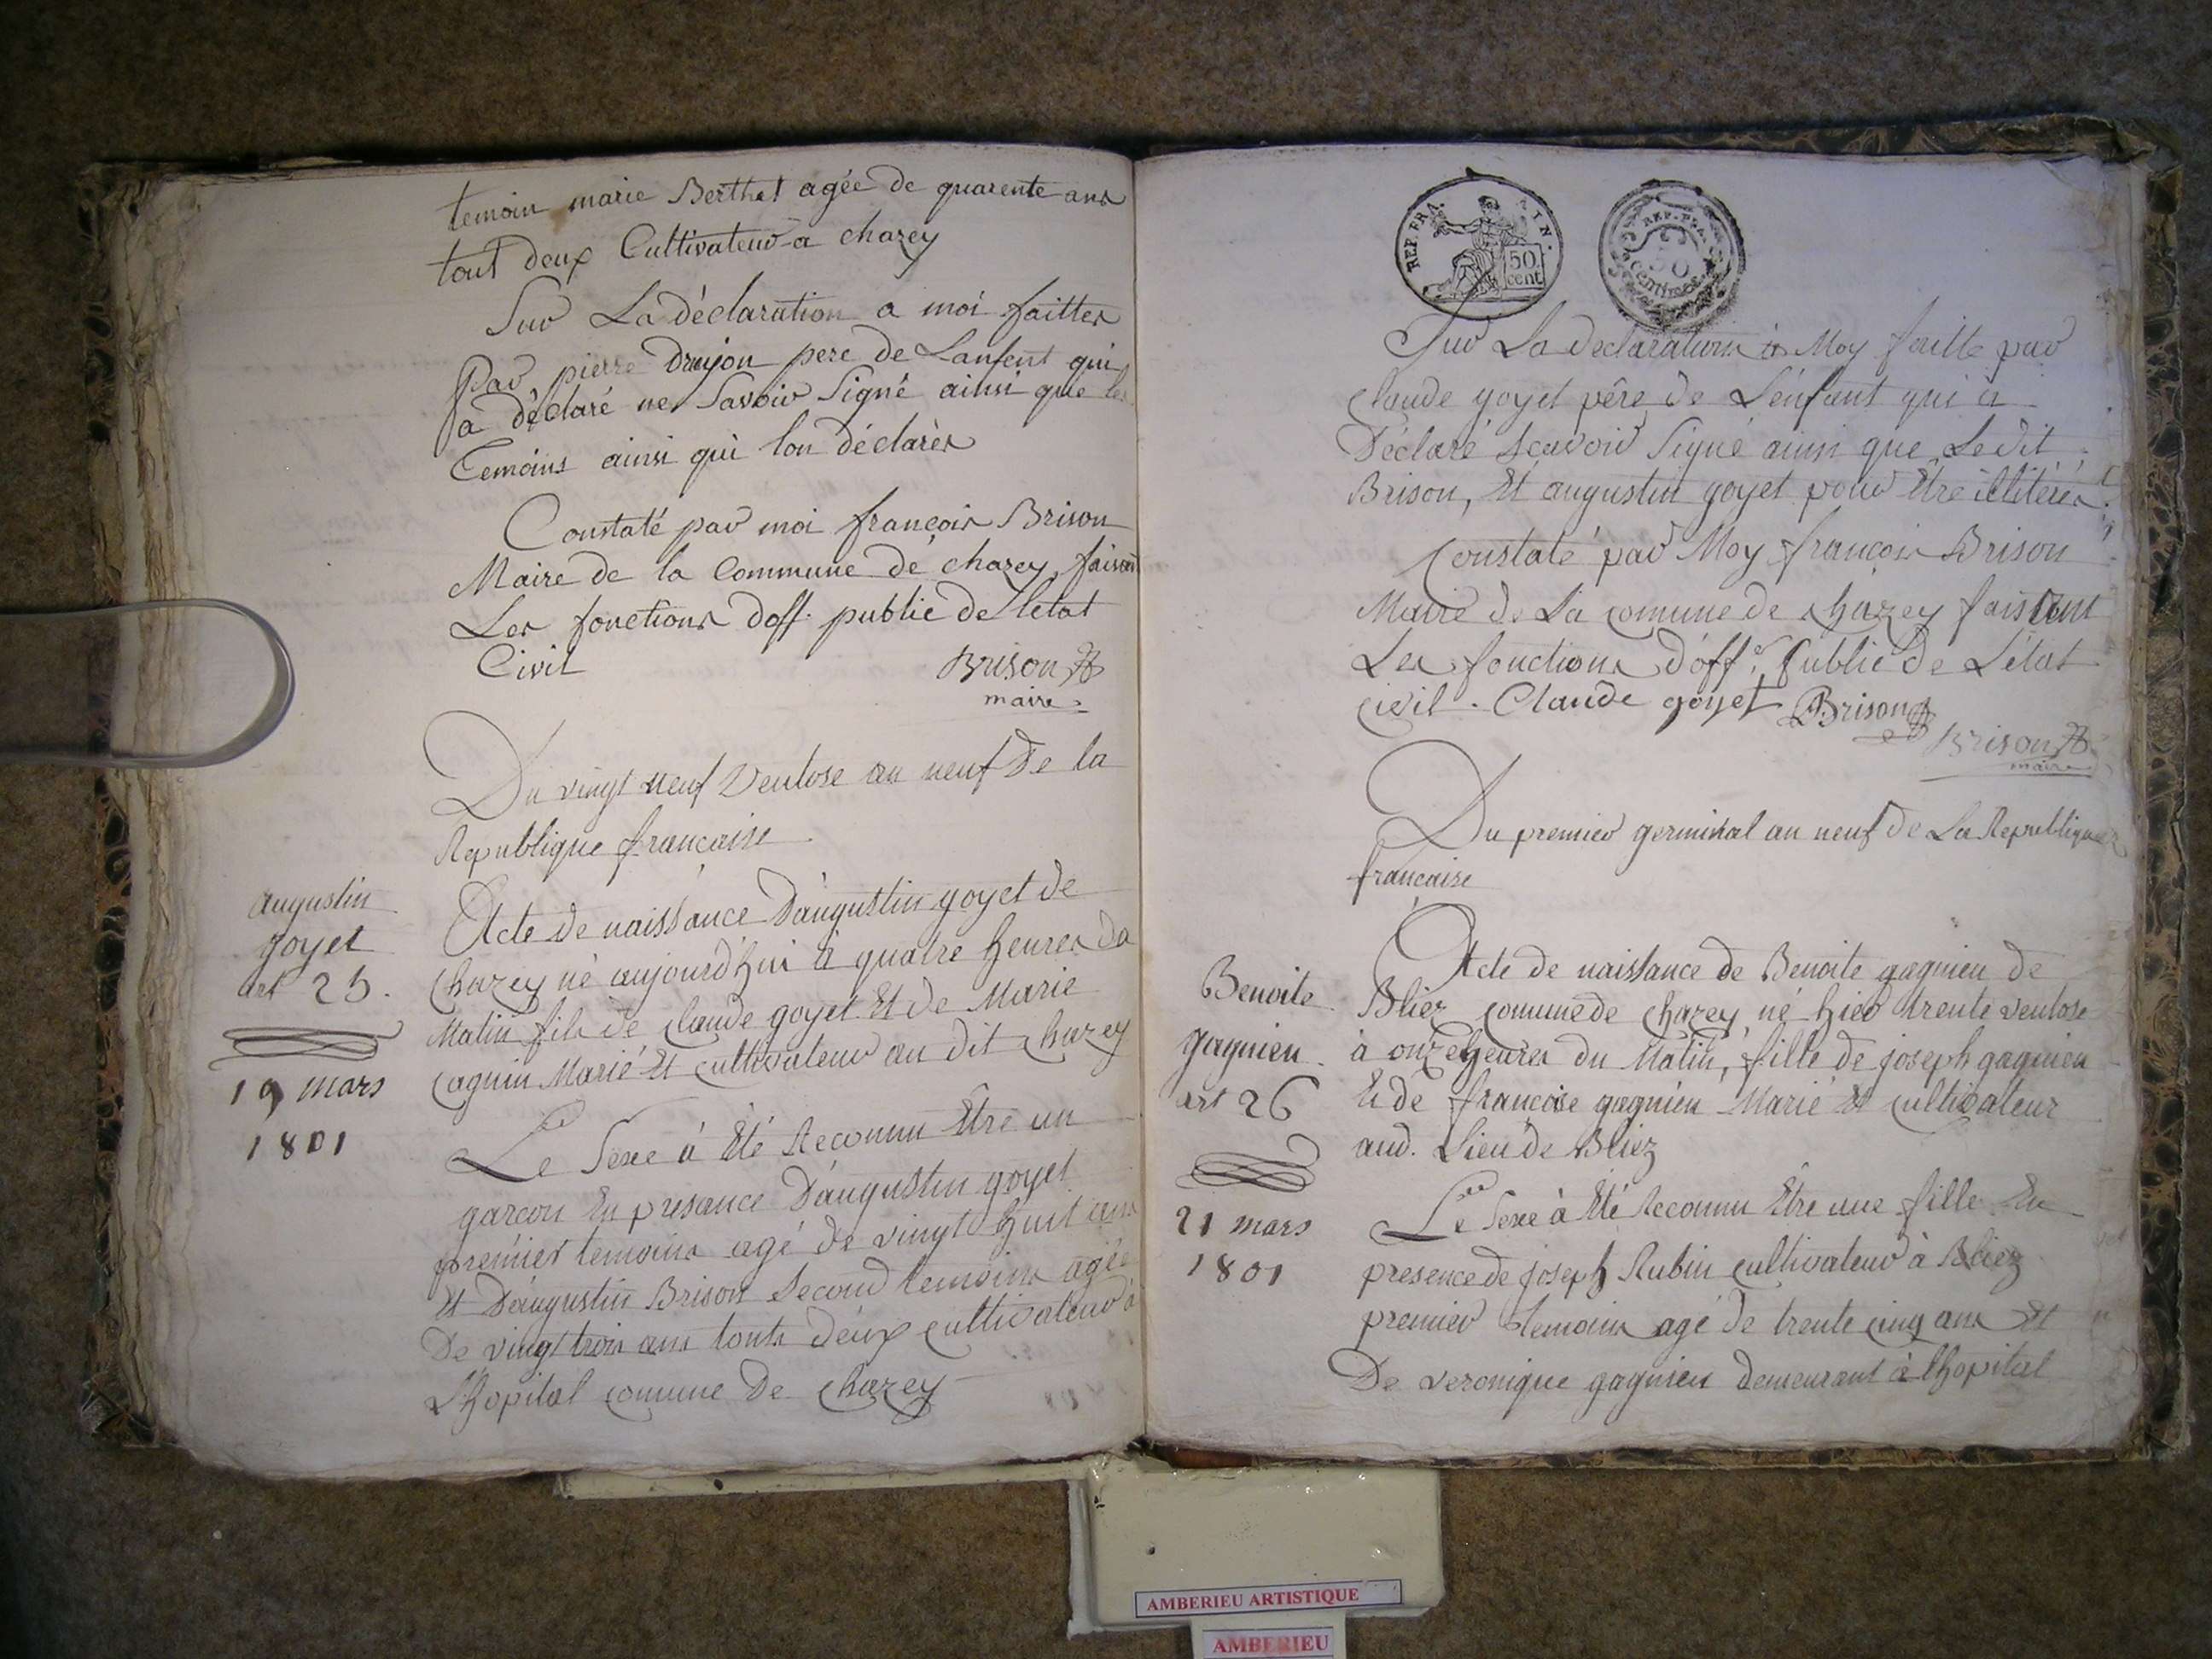 temoin marie Berthet agée de quarente ans
tout deux Cultivateur a chazey
Sur La déclaration a moi faittes
Par pierre Drujon pere de Lanfent qui
a déclaré ne Savoir Signé ainsi que les
Temoins ainsi qui lon déclarés
Constaté par moi francois Brison
Maire de la Commune de chazey faisant
Les fonctions doff. public de Letat
Civil
Brison
maire
Du vingt neuf Ventose an neuf de la
Republique francaise
augustin
goyet
art 25.
19 mars
1801
Acte de naissance D'augustin goyet de
Chazey né aujourd'hui à quatre heures du
Matin fils de claude goyet Et de Marie
cagnin Marié Et cultivateur au dit chazey
Le Sexe à Eté Reconnu Etre un
garcon En presance D'augustin goyet
premier temoins agé de vingt huit ans
Et D'augustin Brison Second temoins agée
De vingt trois ans touts deux cultivateur à
L'hopital comune De chazey
REP. FRA.
50
cent
REP. FRA.
50
centimes
Sur La Declaration à Moy faitte par
Claude goyet pêre de L'énfant qui à
Déclaré Scavoir Signé ainsi que Ledit
Brison, Et augustin goyet pour Etre illitérés
Constaté par Moy francois Brison
Maire de La comune de chazey faisant
Les fonctions D'offr. Public de L'état
civil. Claude goyet Brison
Brison
maire
Du premier germinal an neuf de La Republique
francaise
Benoite
gagnieu
art 26
21 mars
1801
Acte de naissance de Benoite gagnieu de
Bliez comune de chazey né hier trente ventose
à onze heures du Matin, fille de joseph gagnieu
Et de francoise gagnieu Marié Et cultivateur
aud. Lieu de Bliez
Le Sexe à Eté Reconnu Etre une fille En
presence de joseph Rubin cultivateur à Bliez
premier temoins agé de trente cinq ans Et
De veronique gagnieu demeurant à lhopital
AMBERIEU ARTISTIQUE
AMBERIEU